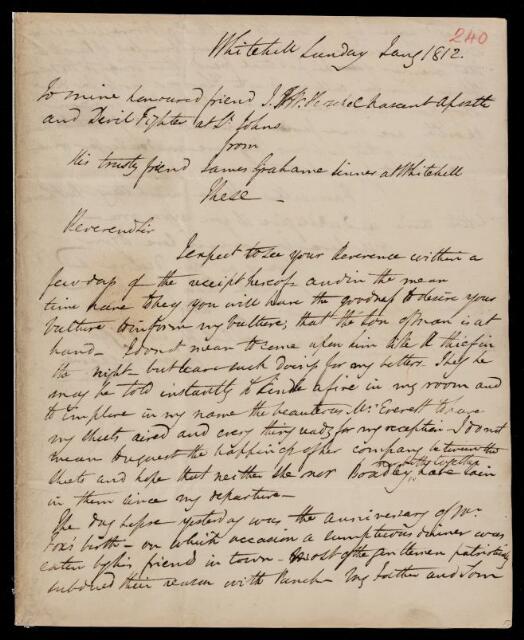 240
Whitehill Sunday Jany 1812.
To mine honoured friend J. F. W. Herschel nascent Apostle
and Devil Fighter at St. Johns
from
His trusty friend James Grahame sinner at Whitehill
These —
Reverend Sir
I expect to see your Reverence within a
few days of the receipt hereof & and in the mean
time have to beg you will have the goodness to desire your
vulture to inform my vulture, that the son of man is at
hand — I do not mean to come upon him like a thief in
the night — but leave such doings for my betters. They he
may be told instantly to kindle a fire in my room and
to implore in my name the beauteous Mrs Everett to have
my sheets aired and every thing ready for my reception I do not
mean to request the happiness of her company between the
sheets and hope that neither she nor have lain
together
in them since my departure —
The day before yesterday was the anniversary of Mr
Fox's birth — on which occasion a sumptuous dinner was
eaten by his friends in town — most of the gentlemen patriotically
subdued their reason with Punch — My Father and Tom